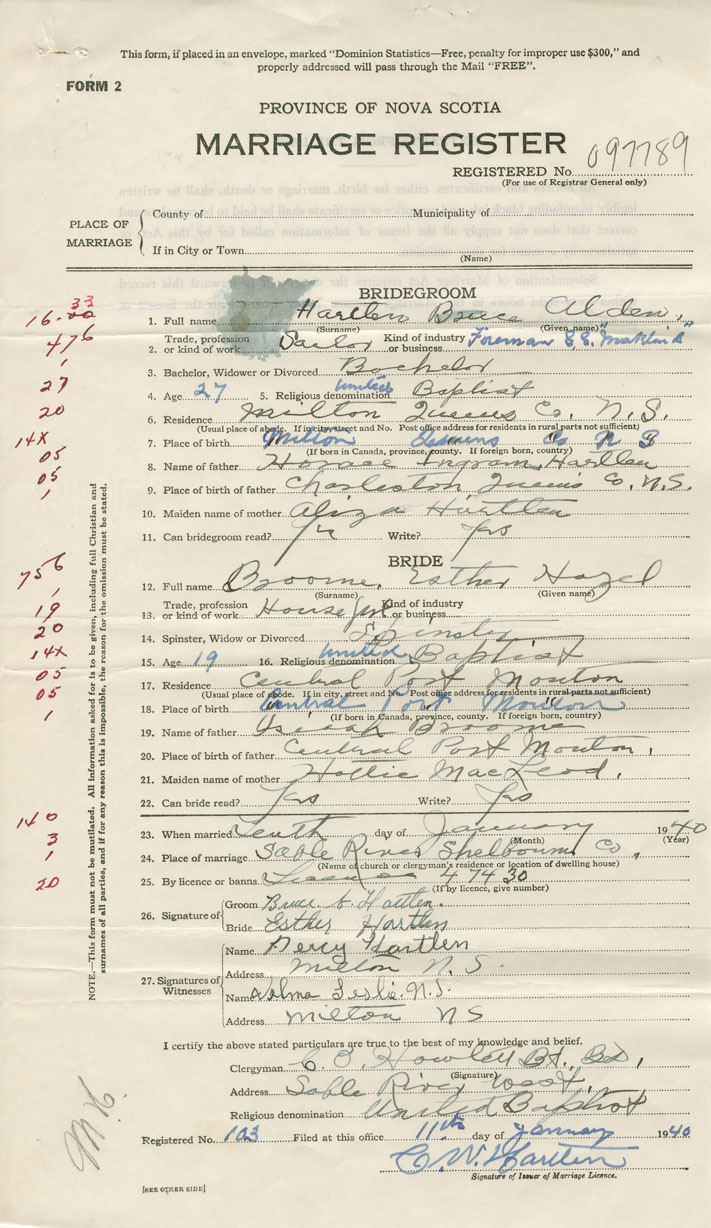 This form, if placed in an envelope, marked "Dominion Statistics—Free, penalty for improper use $300," and
properly addressed will pass through the Mail "FREE".
FORM 2
PROVINCE OF NOVA SCOTIA
MARRIAGE REGISTER
REGISTERED No. 097789
(For use of Registrar General only)
PLACE OF MARRIAGE
County of Municipality of
If in City or Town
(Name)
BRIDEGROOM
33
16-00
1. Full name Hartlen Bruce Alden,
(Surname) (Given name)
476
Trade, profession Kind of industry
2. or kind of work Sailor or business Foreman S.S. "Markland"
1
3. Bachelor, Widower or Divorced Bachelor
27
4. Age 27 5. Religious denomination United Baptist
20
6. Residence Milton Queens Co. N.S.
(Usual place of abode. If in city, street and No. Post office address for residents in rural parts not sufficient)
14X
7. Place of birth Milton Queens Co N S
(If born in Canada, province, county. If foreign born, country)
05
8. Name of father Horace Ingram Hartlen
05
9. Place of birth of father Charleston Queens Co. N.S.
1
10. Maiden name of mother Aliza Hartlen
11. Can bridegroom read? Yes Write? Yes
BRIDE
756
12. Full name Broome, Esther Hazel
(Surname) (Given name)
1
Trade, profession Kind of industry
19
13. or kind of work House or business
20
14. Spinster, Widow or Divorced Spinster
14X
15. Age 19 16. Religious denomination United Baptist
05
17. Residence Central Port Mouton
(Usual place of abode. If in city, street and No. Post office address for residents in rural parts not sufficient)
05
18. Place of birth Central Port Mouton
(If born in Canada, province, county. If foreign born, country)
1
19. Name of father Isaiah Broome
20. Place of birth of father Central Port Mouton,
21. Maiden name of mother Hattie MacLeod,
22. Can bride read? Yes Write? Yes
140
23. When married Tenth day of January 1940
(Month) (Year)
3
24. Place of marriage Sable River Shelburne Co,
(Name of church or clergyman's residence or location of dwelling house)
1
20
25. By licence or banns License 47430
(If by licence, give number)
26. Signature of
Groom Bruce A. Hartlen.
Bride Esther Hartlen
27. Signatures of Witnesses
Name Percy Hartlen
Address Milton N.S.
Name Velma Leslie. N.S.
Address Milton N S
NOTE.—This form must not be mutilated. All information asked for is to be given, including full Christian and
surnames of all parties, and if for any reason this is impossible, the reason for the omission must be stated.
I certify the above stated particulars are true to the best of my knowledge and belief.
Clergyman C. B. Howlett
(Signature)
Address Sable River West,
Religious denomination United Baptist
M.K.
Registered No. 103 Filed at this office 11th day of January 1940
C. W. Hartlen
Signature of Issuer of Marriage Licence.
[SEE OTHER SIDE]